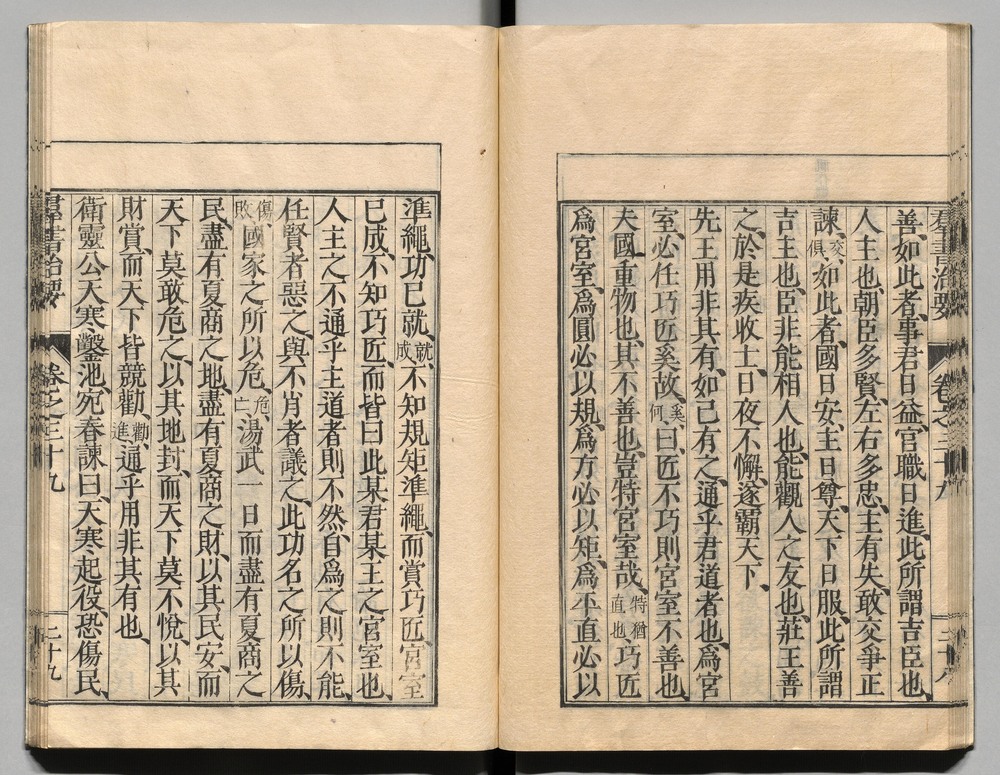 羣書治要 卷之三十九 二十八
善如此者、事君日益、官職日進、此所謂吉臣也、
人主也、朝臣多賢、左右多忠、主有失、敢交爭正
諫、交俱、如此者、國日安、主日尊、天下日服、此所謂
吉主也、臣非能相人也、能觀人之友也、莊王善
之、於是疾收士、日夜不懈、遂霸天下、
先王用非其有、如己有之、通乎君道者也、爲宮
室、必任巧匠、奚故、奚何、曰、匠不巧則宮室不善也、
夫國重物也、其不善也、豈特宮室哉、特猶直也、巧匠
爲宮室、爲圓必以規、爲方必以矩、爲平直必以
準繩、功已就、就成、不知規矩準繩、而賞巧匠、宮室
已成、不知巧匠、而皆曰此某君某王之宮室也、
人主之不通乎主道者則不然、自爲之則不能、
任賢者惡之、與不肖者議之、此功名之所以傷、
傷敗、國家之所以危、危亡、湯武一日而盡有夏商之
民、盡有夏商之地、盡有夏商之財、以其民安、而
天下莫敢危之、以其地封、而天下莫不悅、以其
財賞、而天下皆競勸、勸進、通乎用非其有也、
衛靈公天寒鑿池、宛春諫曰、天寒起役、恐傷民、
羣書治要 卷之三十九 二十九